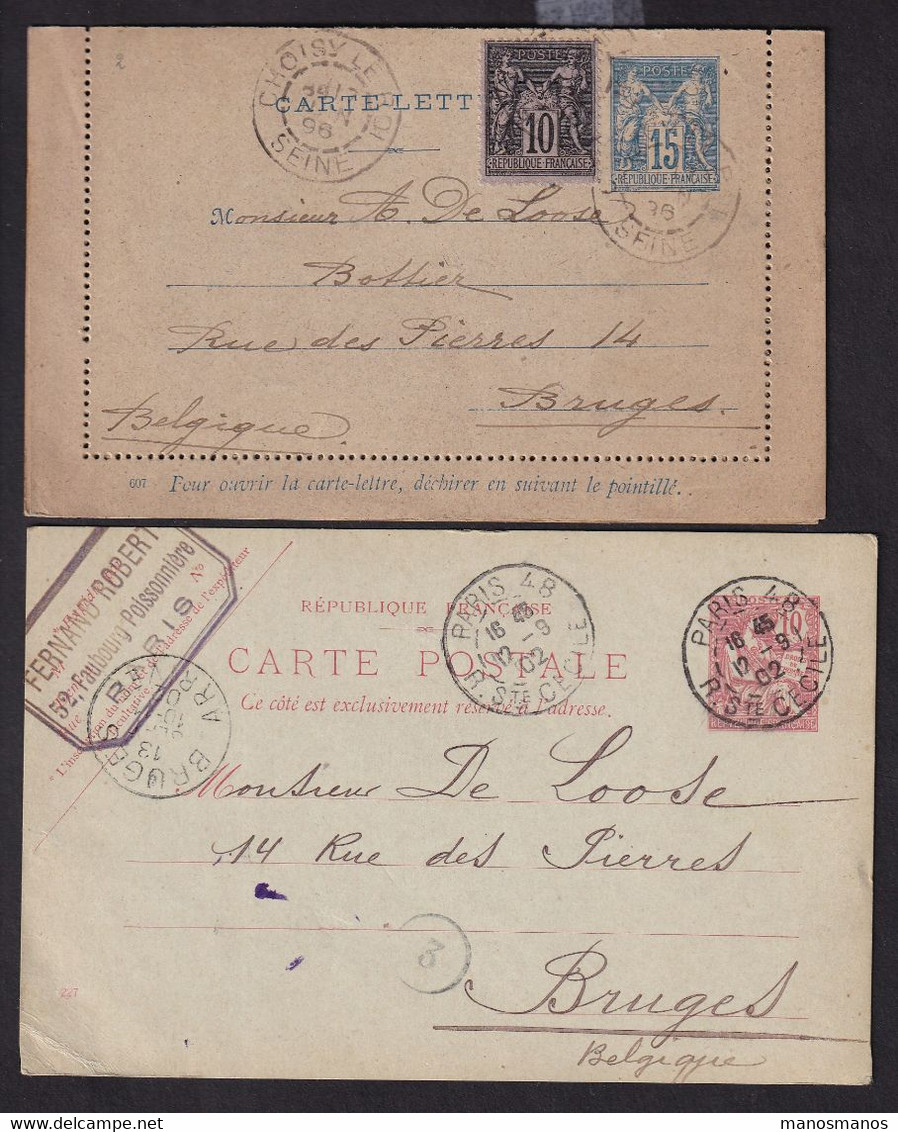 CHOISY LE ROI
96
SEINE
CARTE-LETT
POSTE
10
RÉPUBLIQUE FRANÇAISE
POSTE
15
RÉPUBLIQUE FRANÇAISE
96
SEINE
Monsieur A. De Loose
Bottier
Rue des Pierres 14
Bruges.
Belgique
607 Pour ouvrir la carte-lettre, déchirer en suivant le pointillé.
FERNAND ROBERT
52, Faubourg Poissonnière
PARIS
PARIS 48
16 45
12 -9
02
R. STE CECILE
PARIS 48
16 45
12 -9
02
R. STE CECILE
10
RÉPUBLIQUE FRANÇAISE
CARTE POSTALE
Ce côté est exclusivement réservé à l'adresse.
BRUGES
13
Monsieur De Loose
14 Rue des Pierres
3
Bruges
Belgique
227
manosmanos